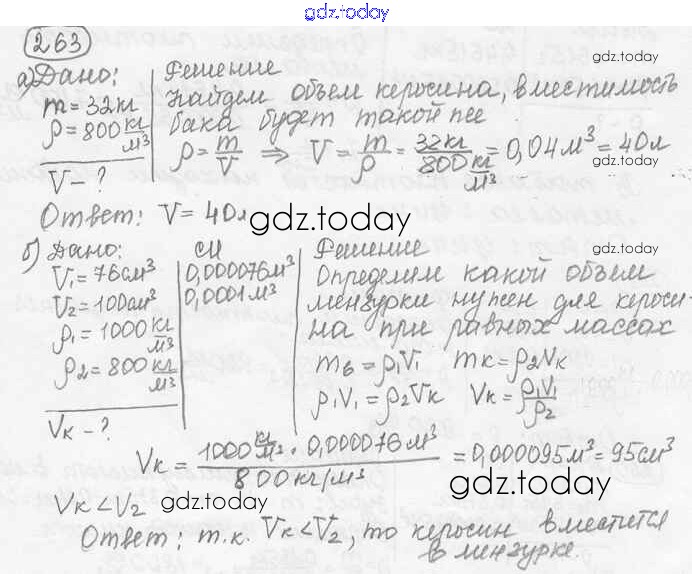 gdz.today
263
а) Дано:
m = 32кг
ρ = 800 кг/м³
V - ?
Решение
Найдем объем керосина, вместимость
бака будет такой же
gdz.today
ρ = m/V ⇒ V = m/ρ = 32кг / 800 кг/м³ = 0,04м³ = 40л
gdz.today
Ответ: V = 40л
gdz.today
gdz.today
б) Дано:
V₁ = 76см³
V₂ = 100см³
ρ₁ = 1000 кг/м³
ρ₂ = 800 кг/м³
Vк - ?
СИ
0,000076м³
0,0001м³
Решение
Определим какой объем
мензурки нужен для кероси-
на при равных массах
gdz.today
mв = ρ₁V₁ mк = ρ₂Vк
ρ₁V₁ = ρ₂Vк Vк = ρ₁V₁/ρ₂
Vк = 1000 кг/м³ · 0,000076м³ / 800кг/м³ = 0,000095м³ = 95см³
Vк < V₂
gdz.today
gdz.today
Ответ: т.к. Vк < V₂, то керосин вместится
в мензурке.
gdz.today